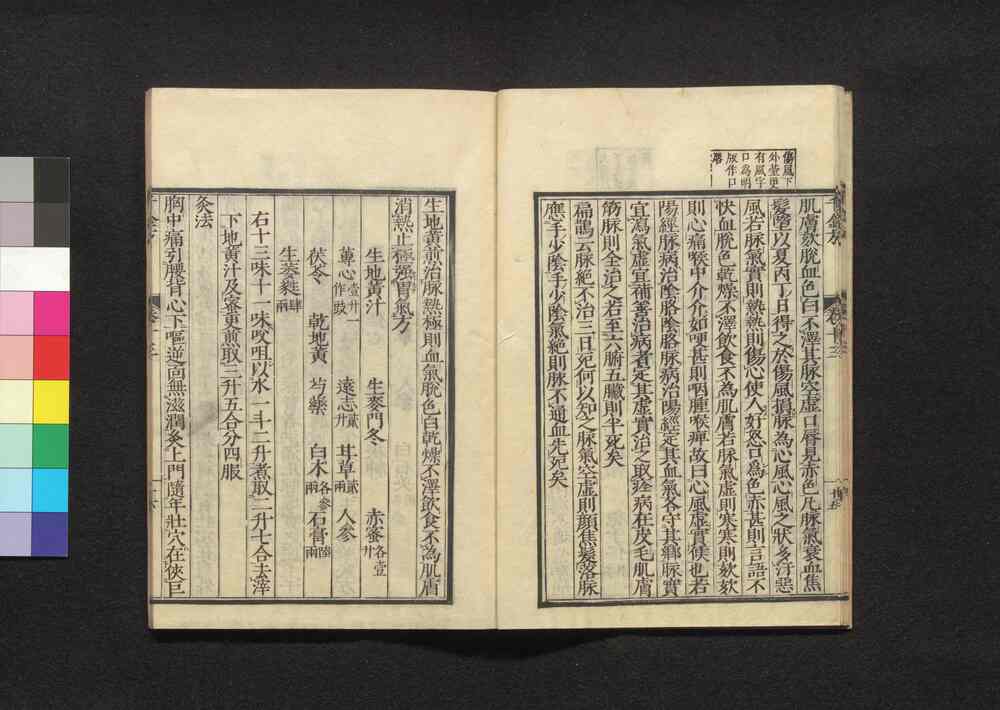 傷風下
外䑓更
有風字
口為明
版作口
唇
肌膚欬脫血色白不澤其脉空虛口唇見赤色凡脉氣衰血焦
髮墮以夏丙丁日得之於傷風損脉為心風心風之狀多汗惡
風若脉氣實則熱熱則傷心使人好怒口為色赤甚則言語不
快血脫色乾燥不澤飲食不為肌膚若脉氣虛則寒寒則欬欬
則心痛喉中介介如哽甚則咽腫喉痺故曰心風虛實候也若
陽經脉病治陰絡陰絡脉病治陽經定其血氣各守其鄉脉實
宜瀉氣虛宜補善治病者定其虛實治之取痊病在皮毛肌膚
筋脉則全治之若至六腑五臟則半死矣
扁鵲云脉絕不治三日死何以知之脉氣空虛則顏焦髮落脉
應手少陰手少陰氣絕則脉不通血先死矣
生地黃煎治脉熱極則血氣脫色白乾燥不澤飲食不為肌膚
消熱止極強胃氣方
生地黃汁 生麥門冬 赤蜜各壹升
蓴心壹升一作豉 遠志貳升 甘草貳兩 人參
茯苓 乾地黃 芍藥 白朮各參兩 石膏陸兩
生葳蕤肆兩
右十三味十一味㕮咀以水一斗二升煮取二升七合去滓
下地黃汁及蜜更煎取三升五合分四服
灸法
胸中痛引腰背心下嘔逆面無滋潤灸上門隨年壯穴在俠巨